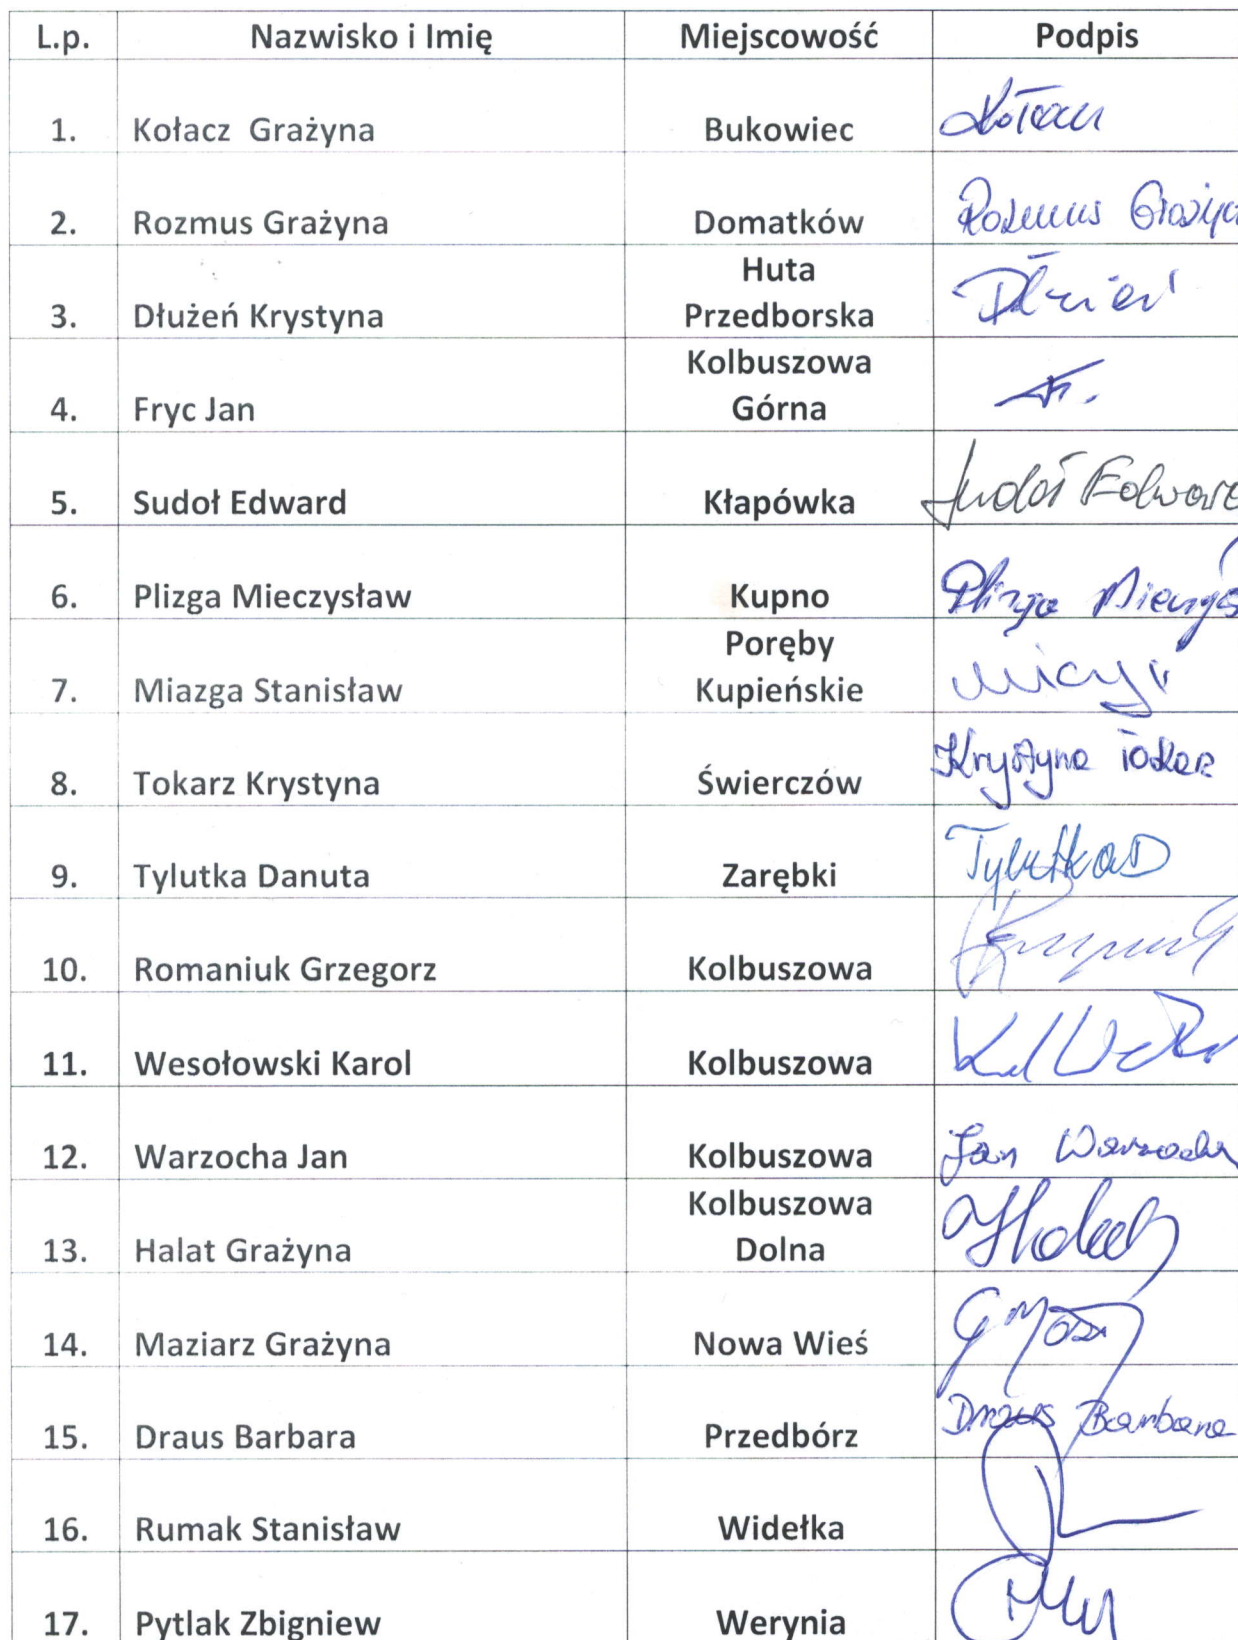 L.p. Nazwisko i Imię Miejscowość Podpis
1. Kołacz Grażyna Bukowiec Kołacz
2. Rozmus Grażyna Domatków Rozmus Grażyna
Huta
3. Dłużeń Krystyna Przedborska Dłużeń
Kolbuszowa
4. Fryc Jan Górna
5. Sudoł Edward Kłapówka Sudoł Edward
6. Plizga Mieczysław Kupno Plizga
Poręby
7. Miazga Stanisław Kupieńskie
8. Tokarz Krystyna Świerczów Krystyna Tokarz
9. Tylutka Danuta Zarębki Tylutka D
10. Romaniuk Grzegorz Kolbuszowa
11. Wesołowski Karol Kolbuszowa
12. Warzocha Jan Kolbuszowa Jan Warzocha
Kolbuszowa
13. Halat Grażyna Dolna
14. Maziarz Grażyna Nowa Wieś
15. Draus Barbara Przedbórz Draus Barbara
16. Rumak Stanisław Widełka
17. Pytlak Zbigniew Werynia